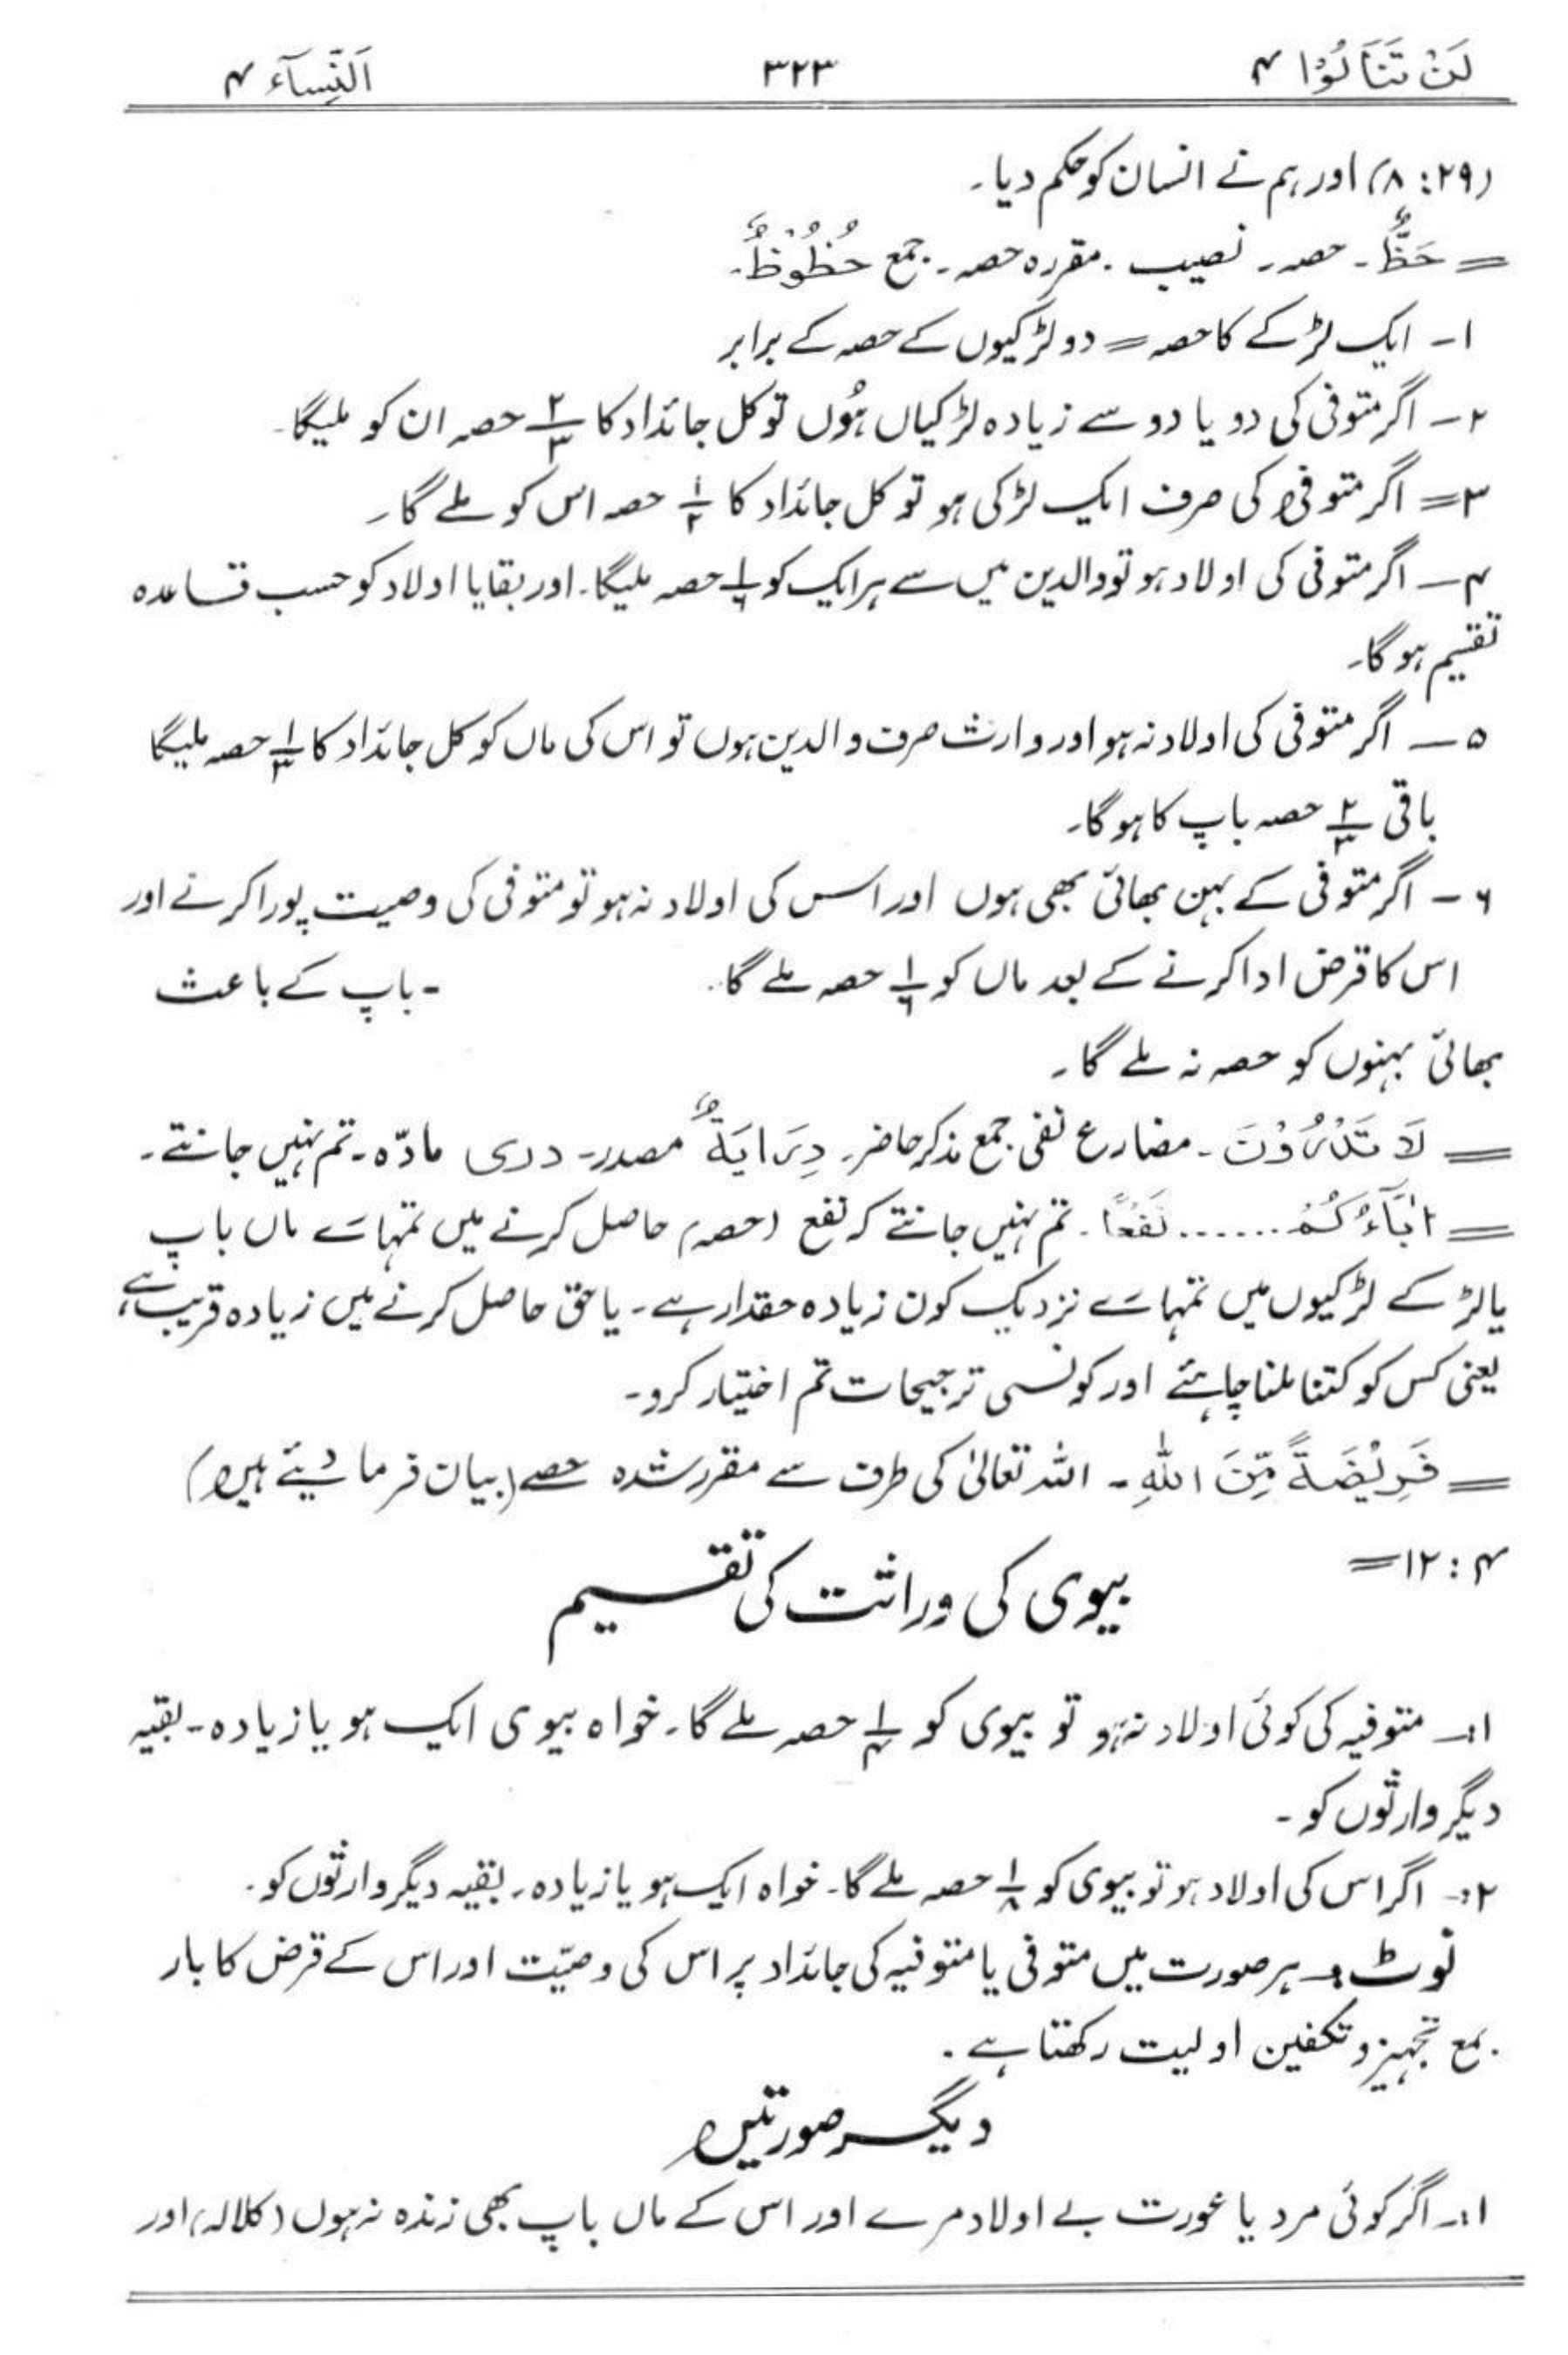 لَنْ تَنَالُوْا ۴ ۳۲۳ اَلنِّسَآء ۴
(۲۹:۸) اور ہم نے انسان کو حکم دیا۔
= حَظٌّ۔ حصہ۔ نصیب۔ مقررہ حصہ۔ جمع حُظُوْظٌ۔
۱۔ ایک لڑکے کا حصہ = دو لڑکیوں کے حصہ کے برابر
۲۔ اگر متوفی کی دو یا دو سے زیادہ لڑکیاں ہُوں تو کل جائداد کا ۲/۳ حصہ ان کو ملیگا۔
۳= اگر متوفی کی صرف ایک لڑکی ہو تو کل جائداد کا ۱/۲ حصہ اس کو ملے گا۔
۴۔ اگر متوفی کی اولاد ہو تو والدین میں سے ہر ایک کو ۱/۶ حصہ ملیگا۔ اور بقایا اولاد کو حسب قاعدہ
تقسیم ہو گا۔
۵۔ اگر متوفی کی اولاد نہ ہو اور وارث صرف والدین ہوں تو اس کی ماں کو کل جائداد کا ۱/۳ حصہ ملیگا
باقی ۲/۳ حصہ باپ کا ہو گا۔
۶۔ اگر متوفی کے بہن بھائی بھی ہوں اور اس کی اولاد نہ ہو تو متوفی کی وصیت پورا کرنے اور
اس کا قرض ادا کرنے کے بعد ماں کو ۱/۶ حصہ ملے گا۔ ۔باپ کے باعث
بھائی بہنوں کو حصہ نہ ملے گا۔
= لَا تَدْرُوْنَ۔ مضارع نفی جمع مذکر حاضر۔ دِرَایَةٌ مصدر۔ دری مادّہ۔ تم نہیں جانتے۔
= اٰبَآءُكُمْ....... نَفْعًا۔ تم نہیں جانتے کہ نفع (حصہ) حاصل کرنے میں تمہارے ماں باپ
یا لڑکے لڑکیوں میں تمہارے نزدیک کون زیادہ حقدار ہے۔ یا حق حاصل کرنے میں زیادہ قریب ہے،
یعنی کس کو کتنا ملنا چاہئے اور کونسی ترجیحات تم اختیار کرو۔
= فَرِيْضَةً مِّنَ اللهِ۔ اللہ تعالیٰ کی طرف سے مقرر شدہ حصے (بیان فرما دیئے ہیں)
۴:۱۲=
بیوی کی وراثت کی تقسیم
۱:۔ متوفیہ کی کوئی اولاد نہ ہو تو بیوی کو ۱/۴ حصہ ملے گا۔ خواہ بیوی ایک ہو یا زیادہ۔ بقیہ
دیگر وارثوں کو۔
۲:۔ اگر اس کی اولاد ہو تو بیوی کو ۱/۸ حصہ ملے گا۔ خواہ ایک ہو یا زیادہ۔ بقیہ دیگر وارثوں کو۔
نوٹ:۔ ہر صورت میں متوفی یا متوفیہ کی جائداد پر اس کی وصیّت اور اس کے قرض کا بار
بمع تجہیز و تکفین اولیت رکھتا ہے۔
دیگر صورتیں
۱:۔ اگر کوئی مرد یا عورت بے اولاد مرے اور اس کے ماں باپ بھی زندہ نہ ہوں (کلالہ) اور